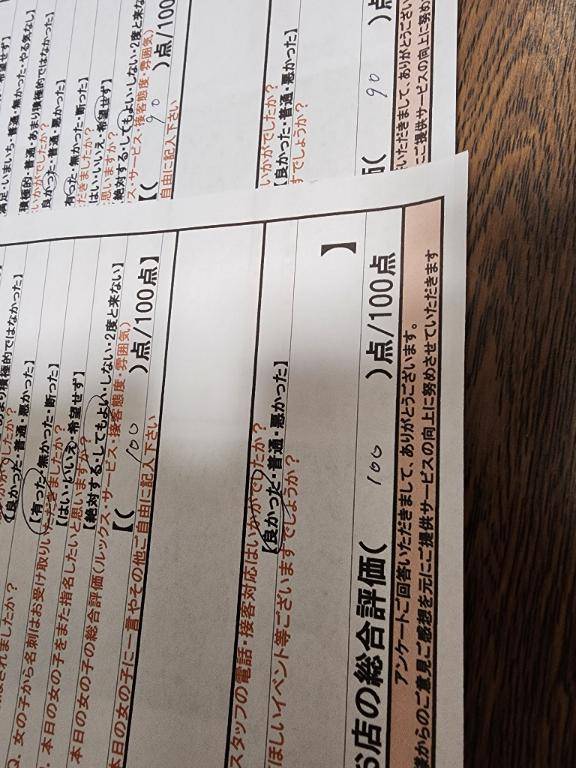 満足・いまいち・普通・無かった・やる気なし
積極的・普通・あまり積極的ではなかった】
いかがでしたか?
良かった・普通・悪かった】
有った・無かった・断った】
だきましたか?
【はい・いいえ・希望せず】
思いますか?
絶対する・してもよい・しない・2度と来な
ス・サービス・接客態度・雰囲気)
【( 90 )点/100
自由に記入下さい
いかがでしたか?
【良かった・普通・悪かった】
すでしょうか?
価( 90 )点
いただきまして、ありがとうござい
にご提供サービスの向上に努め
積極的ではなかった】
されましたか?
【良かった・普通・悪かった】
Q. 女の子から名刺はお受け取りいただきましたか?
【有った・無かった・断った】
本日の女の子をまた指名したいと思いますか?
【はい・いいえ・希望せず】
【絶対する・してもよい・しない・2度と来ない】
本日の女の子の総合評価(ルックス・サービス・接客態度・雰囲気)
【( 100 )点/100点】
本日の女の子に一言やその他ご自由に記入下さい
スタッフの電話・接客対応はいかがでしたか?
【良かった・普通・悪かった】
ほしいイベント等ございますでしょうか?
】
お店の総合評価( 100 )点/100点
アンケートご回答いただきまして、ありがとうございます。
様からのご意見ご感想を元にご提供サービスの向上に努めさせていただきます